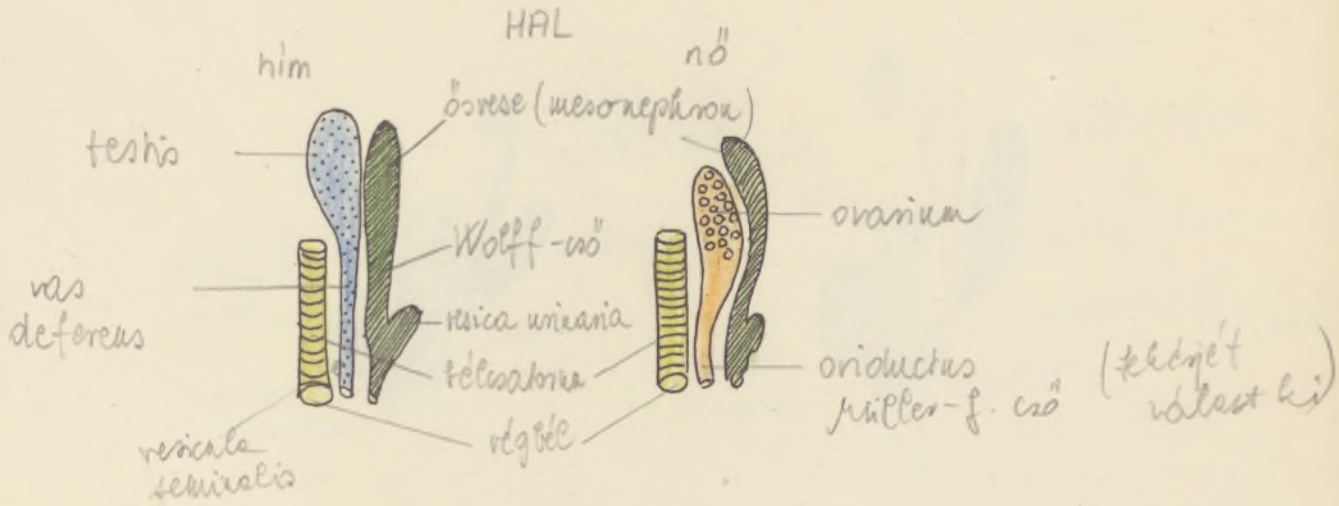 HAL
hím
nő
testis
ősvese (mesonephron)
ovarium
Wolff-cső
vas
deferens
vesica urinaria
bélcsatorna
oviductus
Müller-f. cső
(fehérjét
választ ki)
végbél
vesicula
seminalis